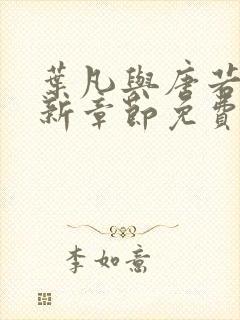 葉凡與唐若
新章節免費
李如意